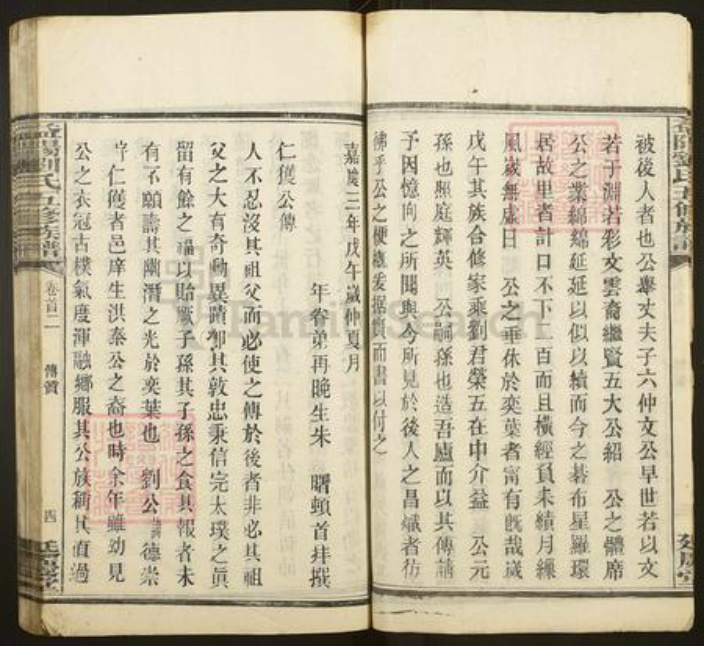 被後人者也公舉丈夫子六仲文公早世若以文
若于淵若彩文雲裔繼賢五大公紹 公之體席
公之業綿綿延延以似以續而今之碁布星羅環
居故里者計口不下二百而且橫經負耒績月繰
風歲無虛日 公之垂休於奕葉者甯有旣哉歲
戊午其族合修家乘劉君榮五在中介益 公元
孫也照庭輝英 公嗣孫也造吾廬而以其傳請
予因憶向之所聞與今所見於後人之昌熾者彷
彿乎公之梗槪爰據實而書以付之
嘉慶三年戊午歲仲夏月
年眷弟再晚生朱 曙頓首拜撰
仁獲公傳
人不忍沒其祖父而必使之傳於後者非必其祖
父之大有奇勳異蹟卽其敦忠秉信完太璞之眞
留有餘之福以貽厥子孫其子孫之食其報者未
有不願譸其幽潛之光於奕葉也 劉公 德崇
字仁獲者邑庠生洪泰公之裔也時余年雖幼見
公之衣冠古樸氣度渾融鄉服其公族稱其直過
益陽劉氏五修族譜
卷首二
傳贊
四